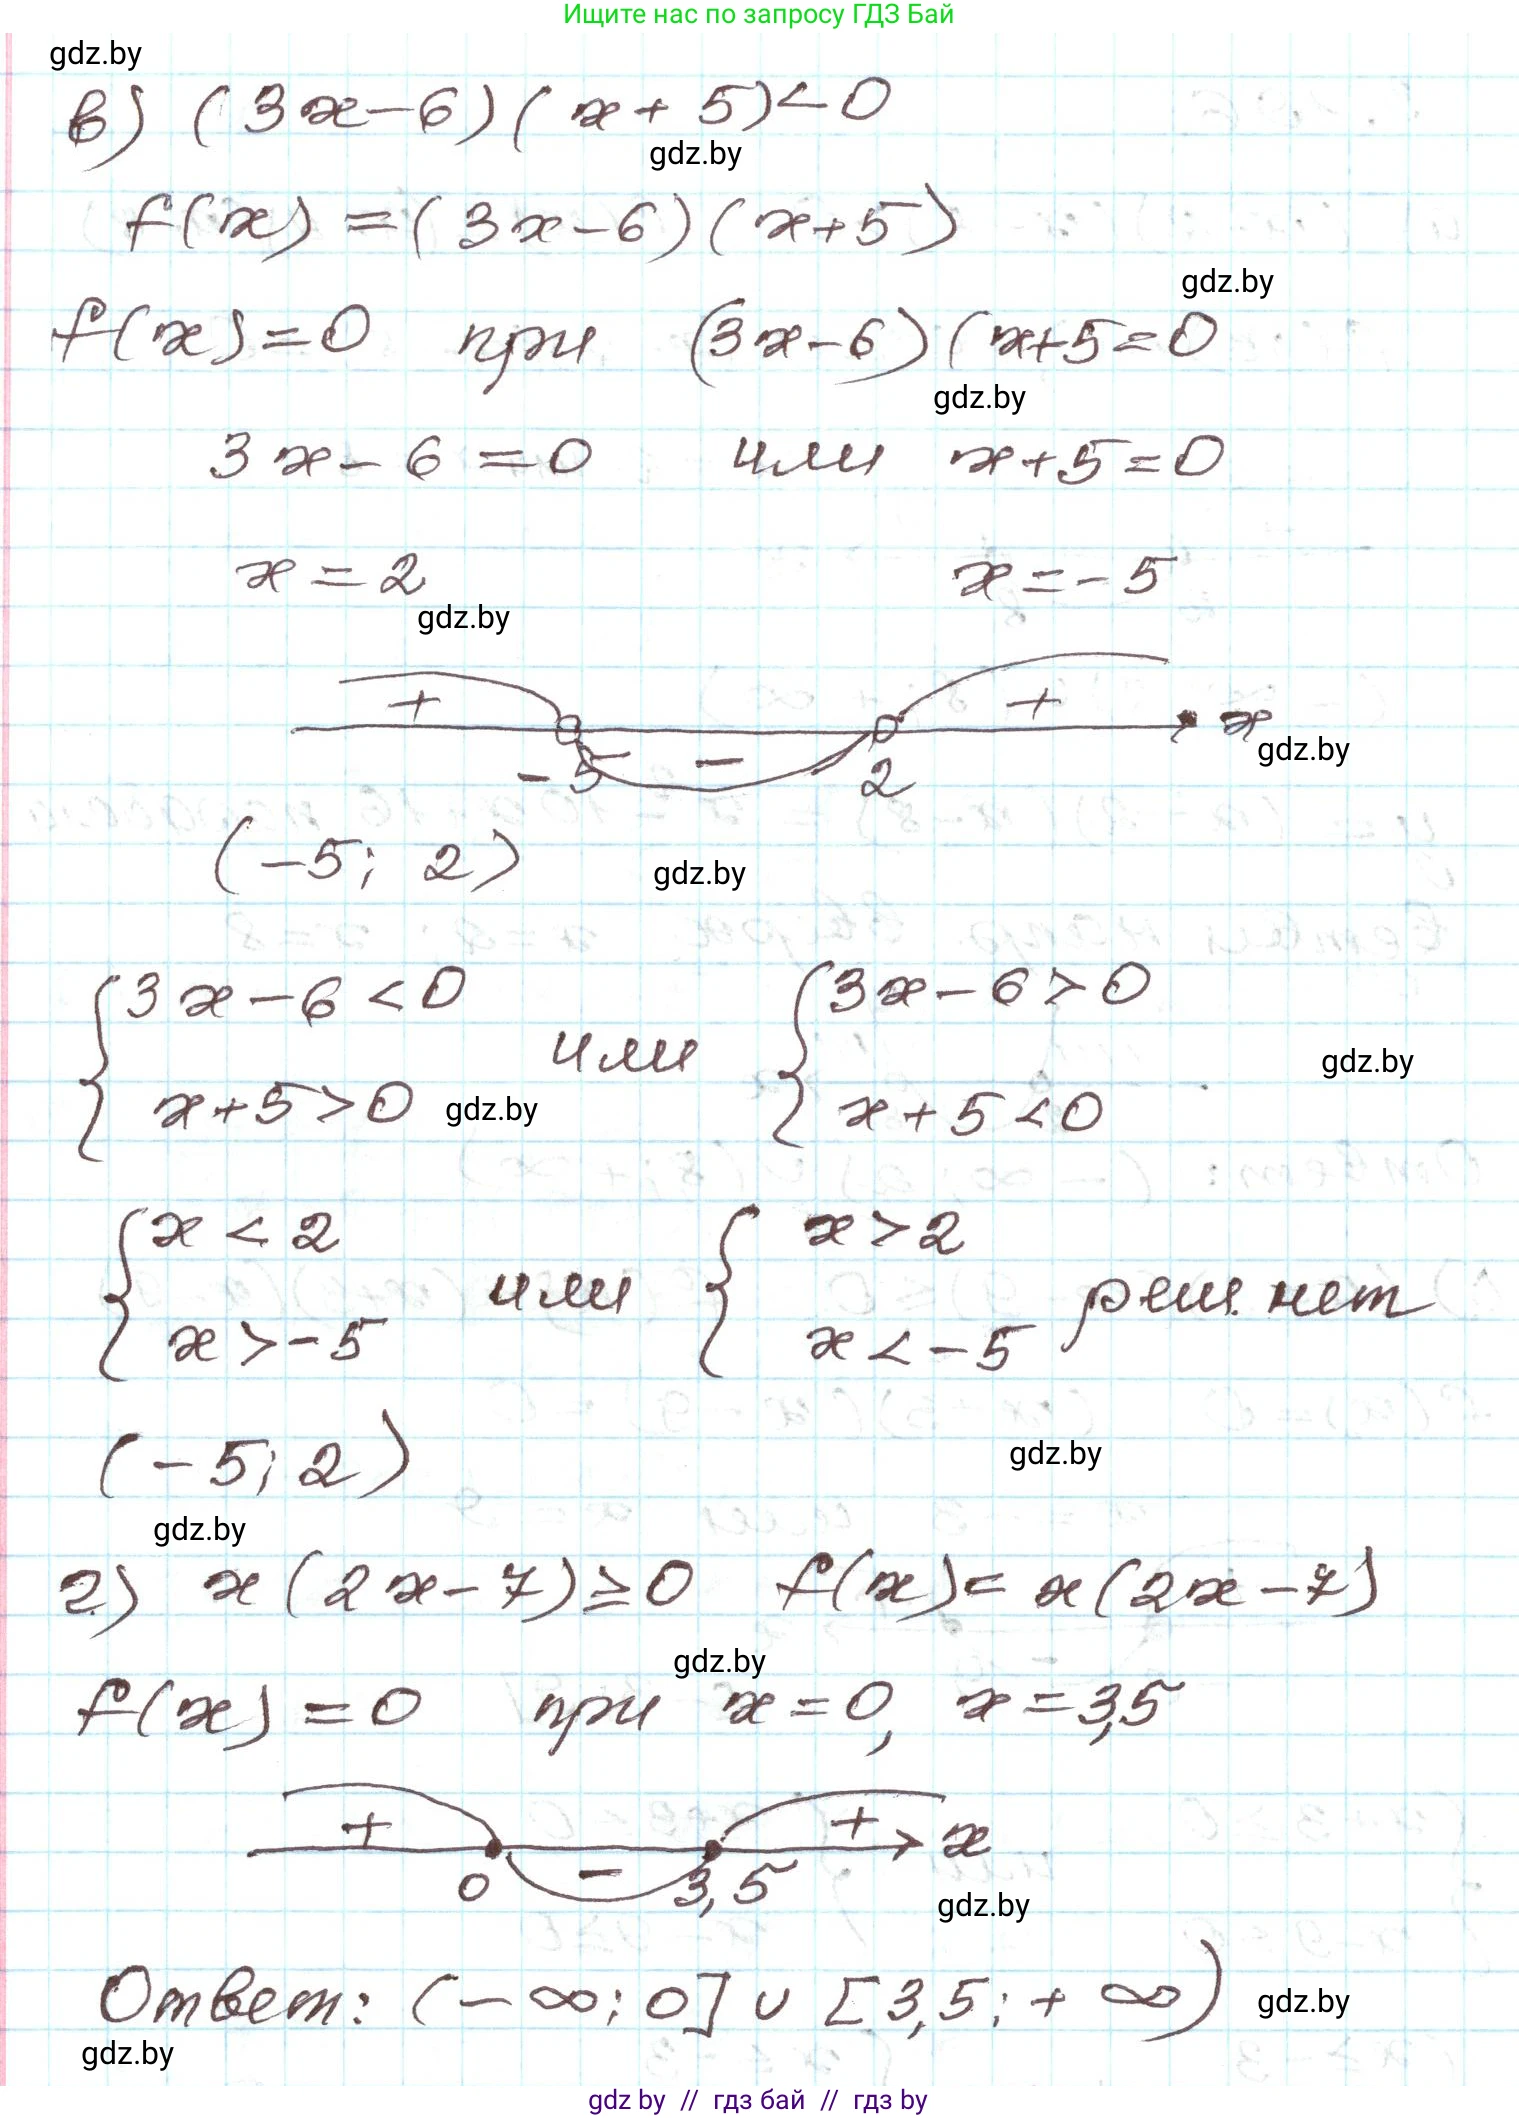 Ищите нас по запросу ГДЗ Бай
gdz.by
в) (3x-6)(x+5)<0
gdz.by
f(x)=(3x-6)(x+5)
gdz.by
f(x)=0 при (3x-6)(x+5=0
gdz.by
3x-6=0 или x+5=0
x=2 x=-5
gdz.by
+ + x
gdz.by
-5 - 2
(-5; 2)
gdz.by
{3x-6<0 или {3x-6>0
gdz.by
x+5>0 x+5<0
gdz.by
{x<2 или {x>2 реш. нет
x>-5 x<-5
(-5; 2)
gdz.by
gdz.by
г) x(2x-7)≥0 f(x)=x(2x-7)
gdz.by
f(x)=0 при x=0, x=3,5
+ + x
0 - 3,5
gdz.by
Ответ: (-∞; 0]∪[3,5; +∞)
gdz.by
gdz.by
gdz by // гдз бай // гдз by